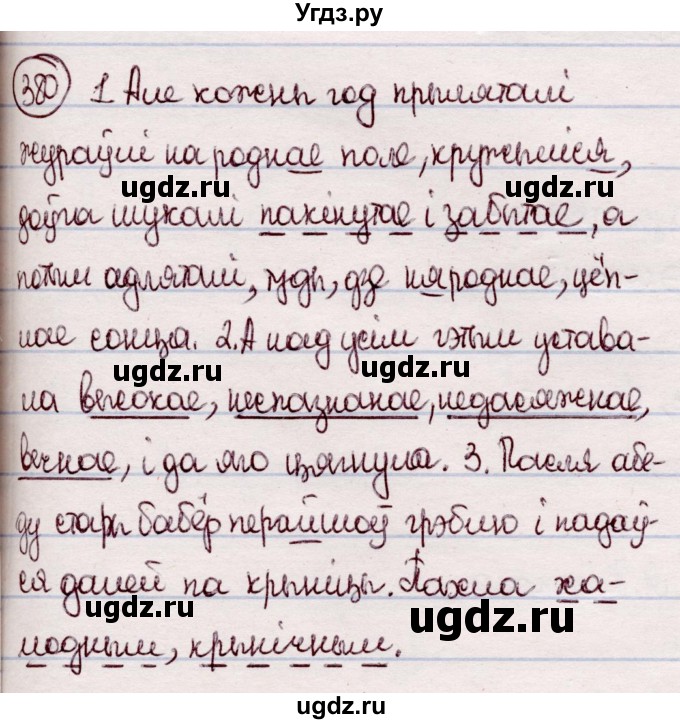 Угдз.ру
380 1. Але кожны год прыляталі
жураўлі на роднае поле, кружыліся,
доўга шукалі пакінутае і забытае, а
потым адляталі, туды, дзе няроднае, цёп-
лае сонца. 2. А над усім гэтым устава-
ла высокае, неспазнанае, недасяжнае,
вечнае, і да яго цягнула. 3. Пасля абе-
ду стары бабёр перайшоў грэблю і падаў-
ся далей па крыніцы. Пахла ха-
лодным, крынічным.
ugdz.ru
ugdz.ru
ugdz.ru
ugdz.ru
ugdz.ru
ugdz.ru
ugdz.ru